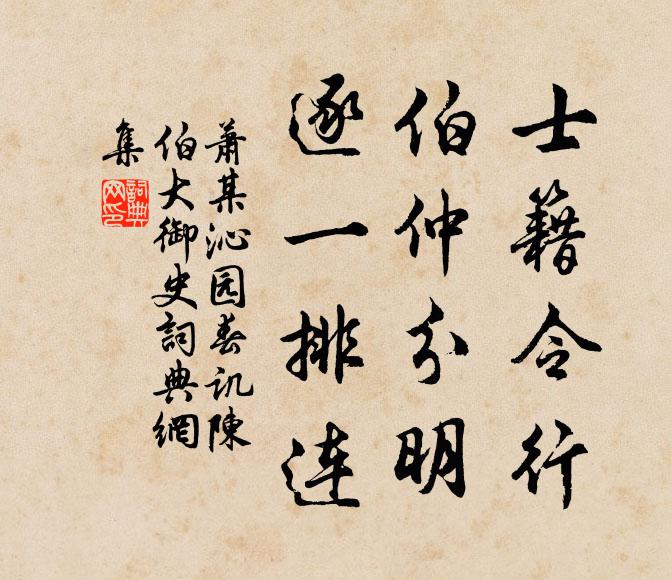 士籍令行
伯仲分明
逐一排连
萧某沁园春讥陳
伯大御史詞典網
集
詞典
网印